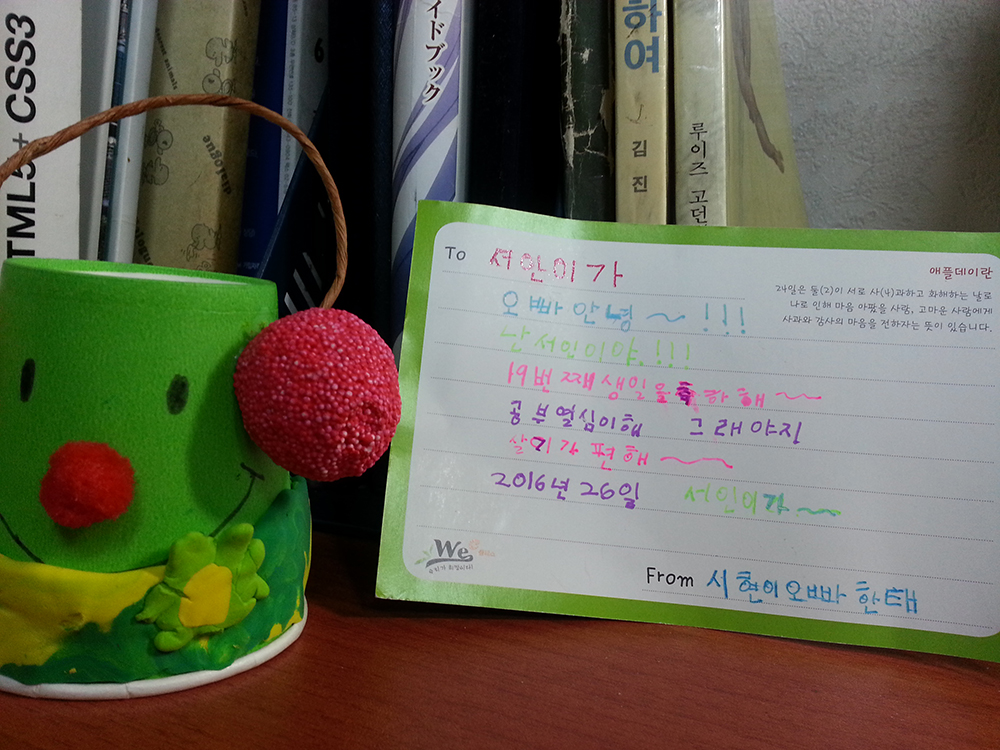 HTML5+ CSS3
dialogue
6
イドブック
하여
김진
루이즈 고던
To 서인이가
애플데이란
24일은 둘(2)이 서로 사(4)과하고 화해하는 날로
나로 인해 마음 아팠을 사람, 고마운 사람에게
사과와 감사의 마음을 전하자는 뜻이 있습니다.
오빠 안녕~!!!
난 서인이야.!!!
19번째 생일을 축하해~~
공부열심이해 그래야지
살기가 편해~~
2016년 26일 서인이가~~
We
From 시현이오빠한태